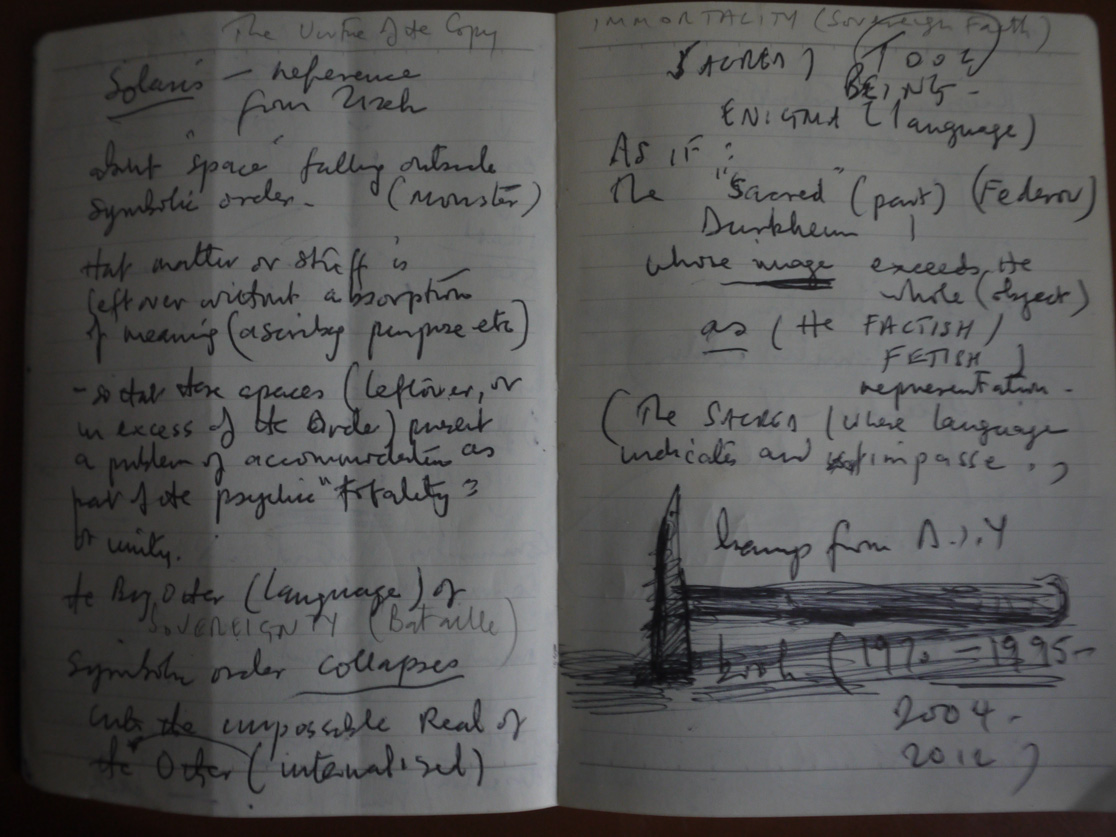 The Virtue of the Copy
Solaris – reference
from Zizek
about "space" falling outside
symbolic order. (Monster)
that matter or stuff is
left over without absorption
of meaning (ascribing purpose etc)
- so that these spaces (leftover, or
in excess of the Order) present
a problem of accommodation as
part of the psychic "totality"
or unity.
the Big Other (language) of
SOVEREIGNTY (Bataille)
Symbolic order collapses
into the impossible Real of
the Other (internalised)
IMMORTALITY (Sovereign Faith)
SACRED)
BEING -
ENIGMA (language)
AS IF :
The "Sacred" (part) (Federov)
Durkheim
whose image exceeds the
whole (object)
as (the FACTISH /
FETISH)
representation.
(The SACRED / where language
indicates and impasse . )
from
book (1970 - 1995 -
2004 -
2012 )